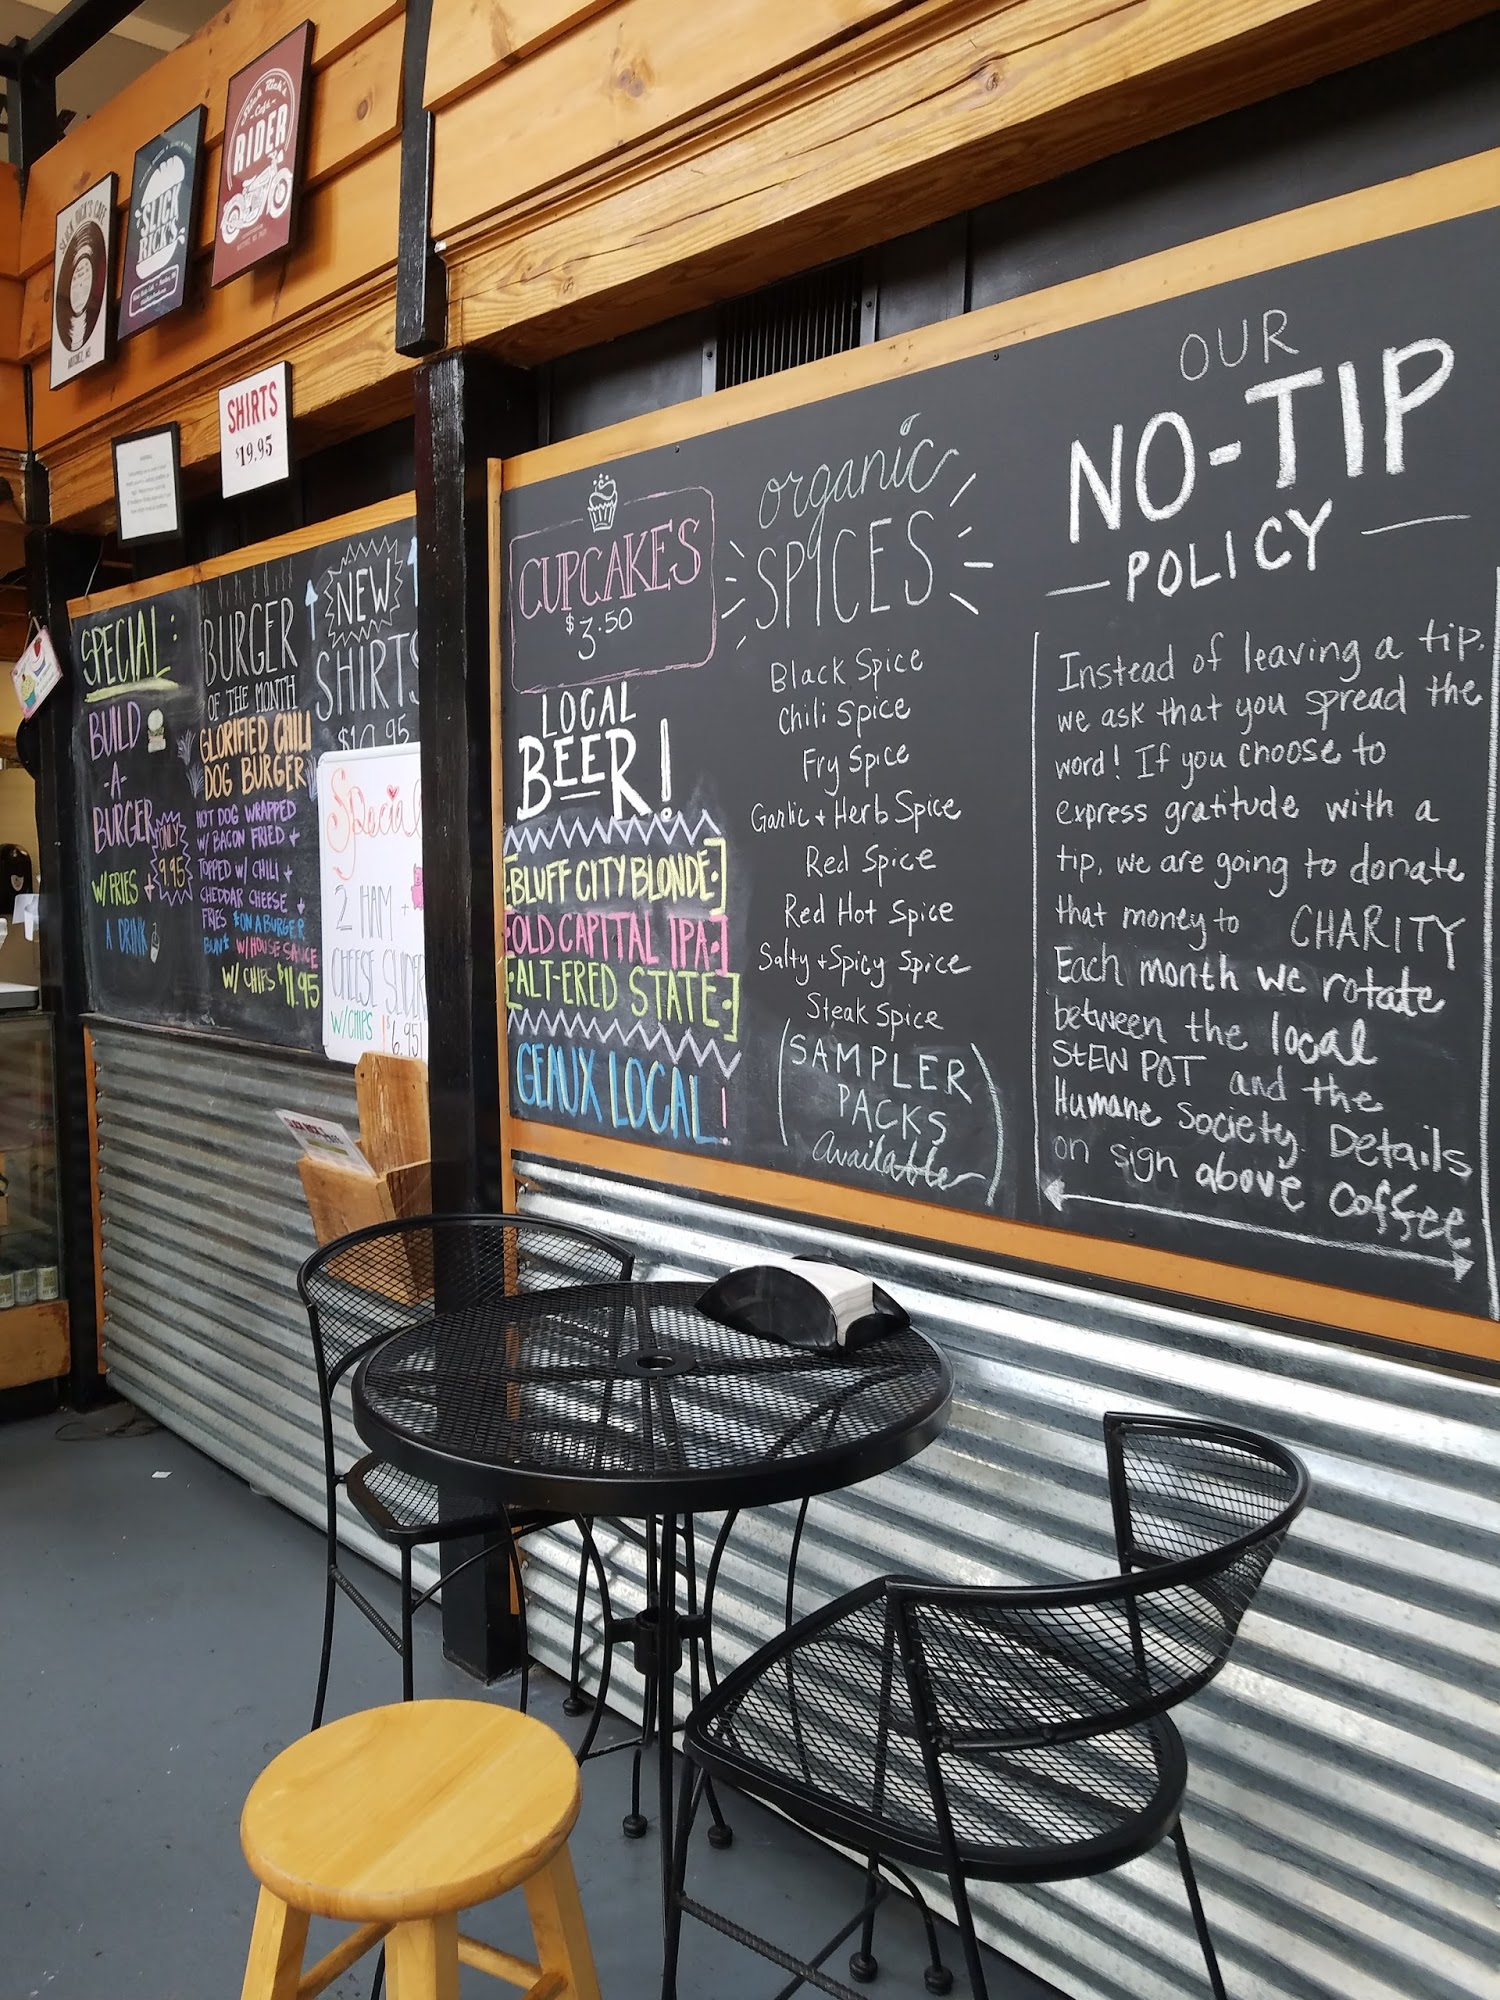 SLICK RICK'S CAFE
NATCHEZ, MS
SLICK
RICK'S
Slick Rick's
-Cafe-
RIDER
SHIRTS
$19.95
SPECIAL:
BUILD
-A-
BURGER
ONLY
9.95
W/ FRIES +
A DRINK
BURGER
OF THE MONTH
GLORIFIED CHILI
DOG BURGER
HOT DOG WRAPPED
W/ BACON FRIED +
TOPPED W/ CHILI +
CHEDDAR CHEESE +
FRIES ON A BURGER
BUN W/ HOUSE SAUCE
W/ CHIPS $11.95
NEW
SHIRTS
$19.95
Special
2 HAM +
CHEESE SLIDER
W/CHIPS $6.95
CUPCAKES
$3.50
LOCAL
BEER!
BLUFF CITY BLONDE
OLD CAPITAL IPA
ALT-ERED STATE
GEAUX LOCAL!
organic
SPICES
Black Spice
Chili Spice
Fry Spice
Garlic + Herb Spice
Red Spice
Red Hot Spice
Salty + Spicy Spice
Steak Spice
(SAMPLER
PACKS
Available)
OUR
NO-TIP
— POLICY —
Instead of leaving a tip,
we ask that you spread the
word! If you choose to
express gratitude with a
tip, we are going to donate
that money to CHARITY
Each month we rotate
between the local
StEW POT and the
Humane Society. Details
on sign above coffee